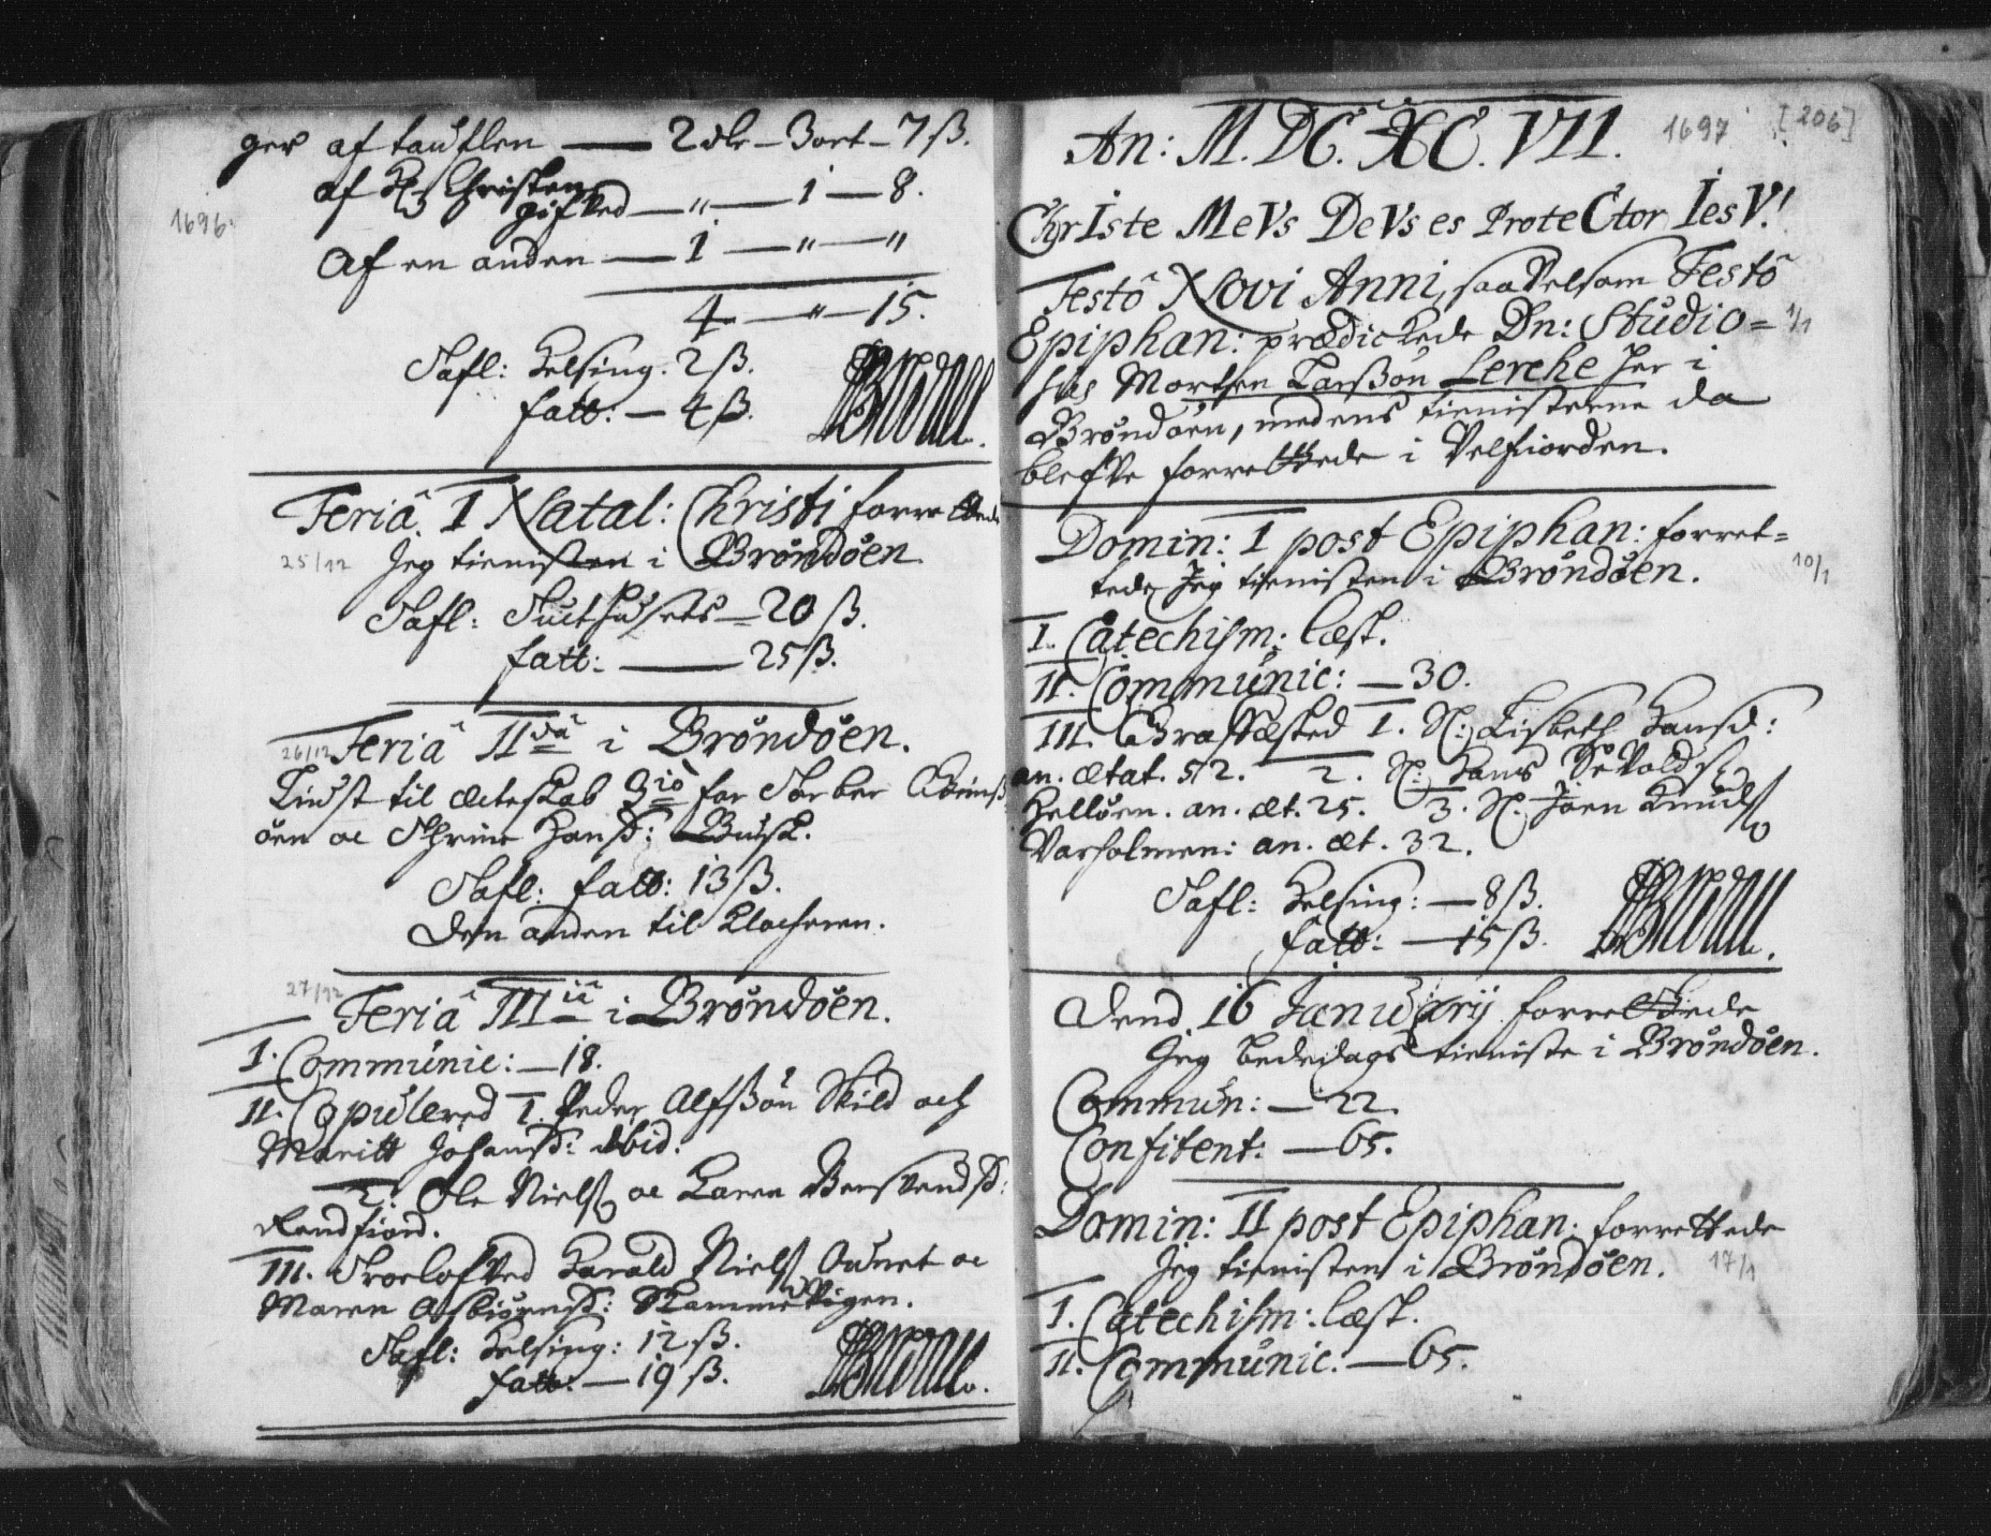 1696.
ger af tauflen — 2 dlr — 3 ort — 7 ß.
af Christen
gifved — " — 1 — 8.
Af en anden — 1 — " — "
4 — " — 15.
Tafl: Helsing. 2 ß.
fatt: — 4 ß.
Feriâ I Natal: Christi forrettede
25/12 Jeg tienisten i Brøndøen
Tafl: Tuct husets — 20 ß.
fatt: — 25 ß.
26/12 Feriâ II dâ i Brøndøen.
Liust til ächteskab 3 iò for Torber
öen oc Thrine Hansd: Busk.
Tafl: fatt: 13 ß.
Den anden til Klocheren.
27/12 Feriâ III iâ i Brøndøen.
I. Communic: — 18.
II. Copulered 1. Peder Alfssøn Skild och
Maritt Johansd: ibid.
2. Ole Niels: oc Karen Bersvendsd:
Rendfiord.
III. Troelofved Harald Niels: oc
Maren Asbiørnsd: Skammevigen.
Tafl: Helsing: 12 ß.
fatt: — 19 ß.
An: M.DC.XC.VII. 1697 [206]
ChrIste MeVs DeVs es ProteCtor IesV!
Festô Novi Anni, saavelsom Festô
Epiphan: prædickede Dn: Studio= 1/1
sus Morthen Larssøn Lerche her i
Brøndøen, medens tienisterne da
blefve forrettede i Velfiorden.
Domin: I post Epiphan: forret=
tede Jeg tienisten i Brøndøen. 10/1
I. Catechism: læst.
II. Communic: — 30.
III. Graffæsted 1. Sl: Lisbeth Hansd:
an. ætat. 52. 2. Sl: Hans Sevalds:
Helløen. an. æt. 25. 3. Sl. Joen Knuds:
Varholmen: an. æt. 32.
Tafl: Helsing: — 8 ß.
fatt: — 15 ß.
Dend 16 Januarij forrettede
Jeg bededags tieniste i Brøndøen.
Commun: — 22.
Confitent: — 65.
Domin: II post Epiphan: forrettede
Jeg tienisten i Brøndøen. 17/1
I. Catechism: læst.
II. Communic: — 65.